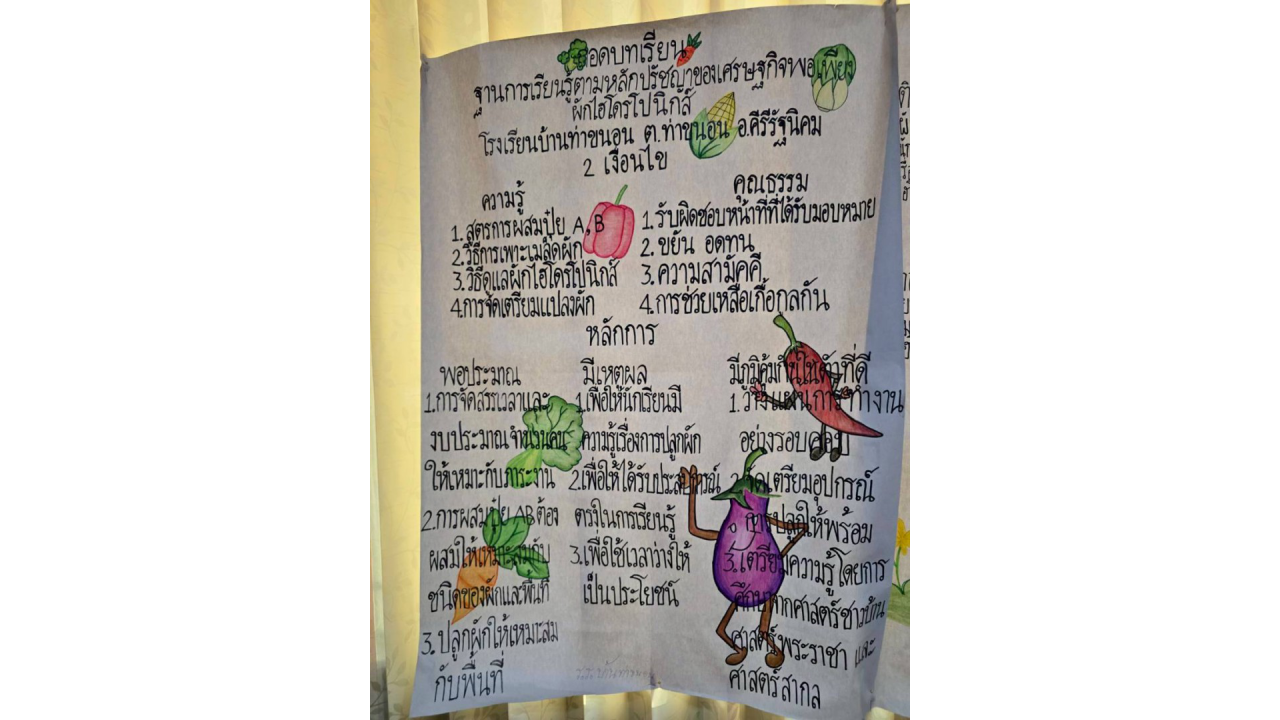 ถอดบทเรียน
ฐานการเรียนรู้ตามหลักปรัชญาของเศรษฐกิจพอเพียง
ผักไฮโดรโปนิกส์
โรงเรียนบ้านท่าขนอน ต.ท่าขนอน อ.คีรีรัฐนิคม
2 เงื่อนไข
ความรู้
1. สูตรการผสมปุ๋ย A,B
2. วิธีการเพาะเมล็ดผัก
3. วิธีดูแลผักไฮโดรโปนิกส์
4. การจัดเตรียมแปลงผัก
คุณธรรม
1. รับผิดชอบหน้าที่ที่ได้รับมอบหมาย
2. ขยัน อดทน
3. ความสามัคคี
4. การช่วยเหลือเกื้อกูลกัน
หลักการ
พอประมาณ
1. การจัดสรรเวลาและ
งบประมาณ จำนวนคน
ให้เหมาะกับภาระงาน
2. การผสมปุ๋ย AB ต้อง
ผสมให้เหมาะสมกับ
ชนิดของผักและพื้นที่
3. ปลูกผักให้เหมาะสม
กับพื้นที่
มีเหตุผล
1. เพื่อให้นักเรียนมี
ความรู้เรื่องการปลูกผัก
2. เพื่อให้ได้รับประสบการณ์
ตรงในการเรียนรู้
3. เพื่อใช้เวลาว่างให้
เป็นประโยชน์
มีภูมิคุ้มกันในตัวที่ดี
1. วางแผนการทำงาน
อย่างรอบคอบ
2. จัดเตรียมอุปกรณ์
การปลูกให้พร้อม
3. เตรียมความรู้โดยการ
ศึกษาจากศาสตร์ชาวบ้าน
ศาสตร์พระราชา และ
ศาสตร์สากล